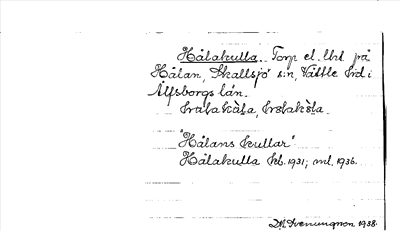 Hålakulla. Torp el. lht. på
Hålan, Skallsjö s:n, Vättle hd i
Älfsborgs län.
"Hålans kullar"
Hålakulla kb. 1931; ml. 1936.
D.N. Svenungsson 1938.